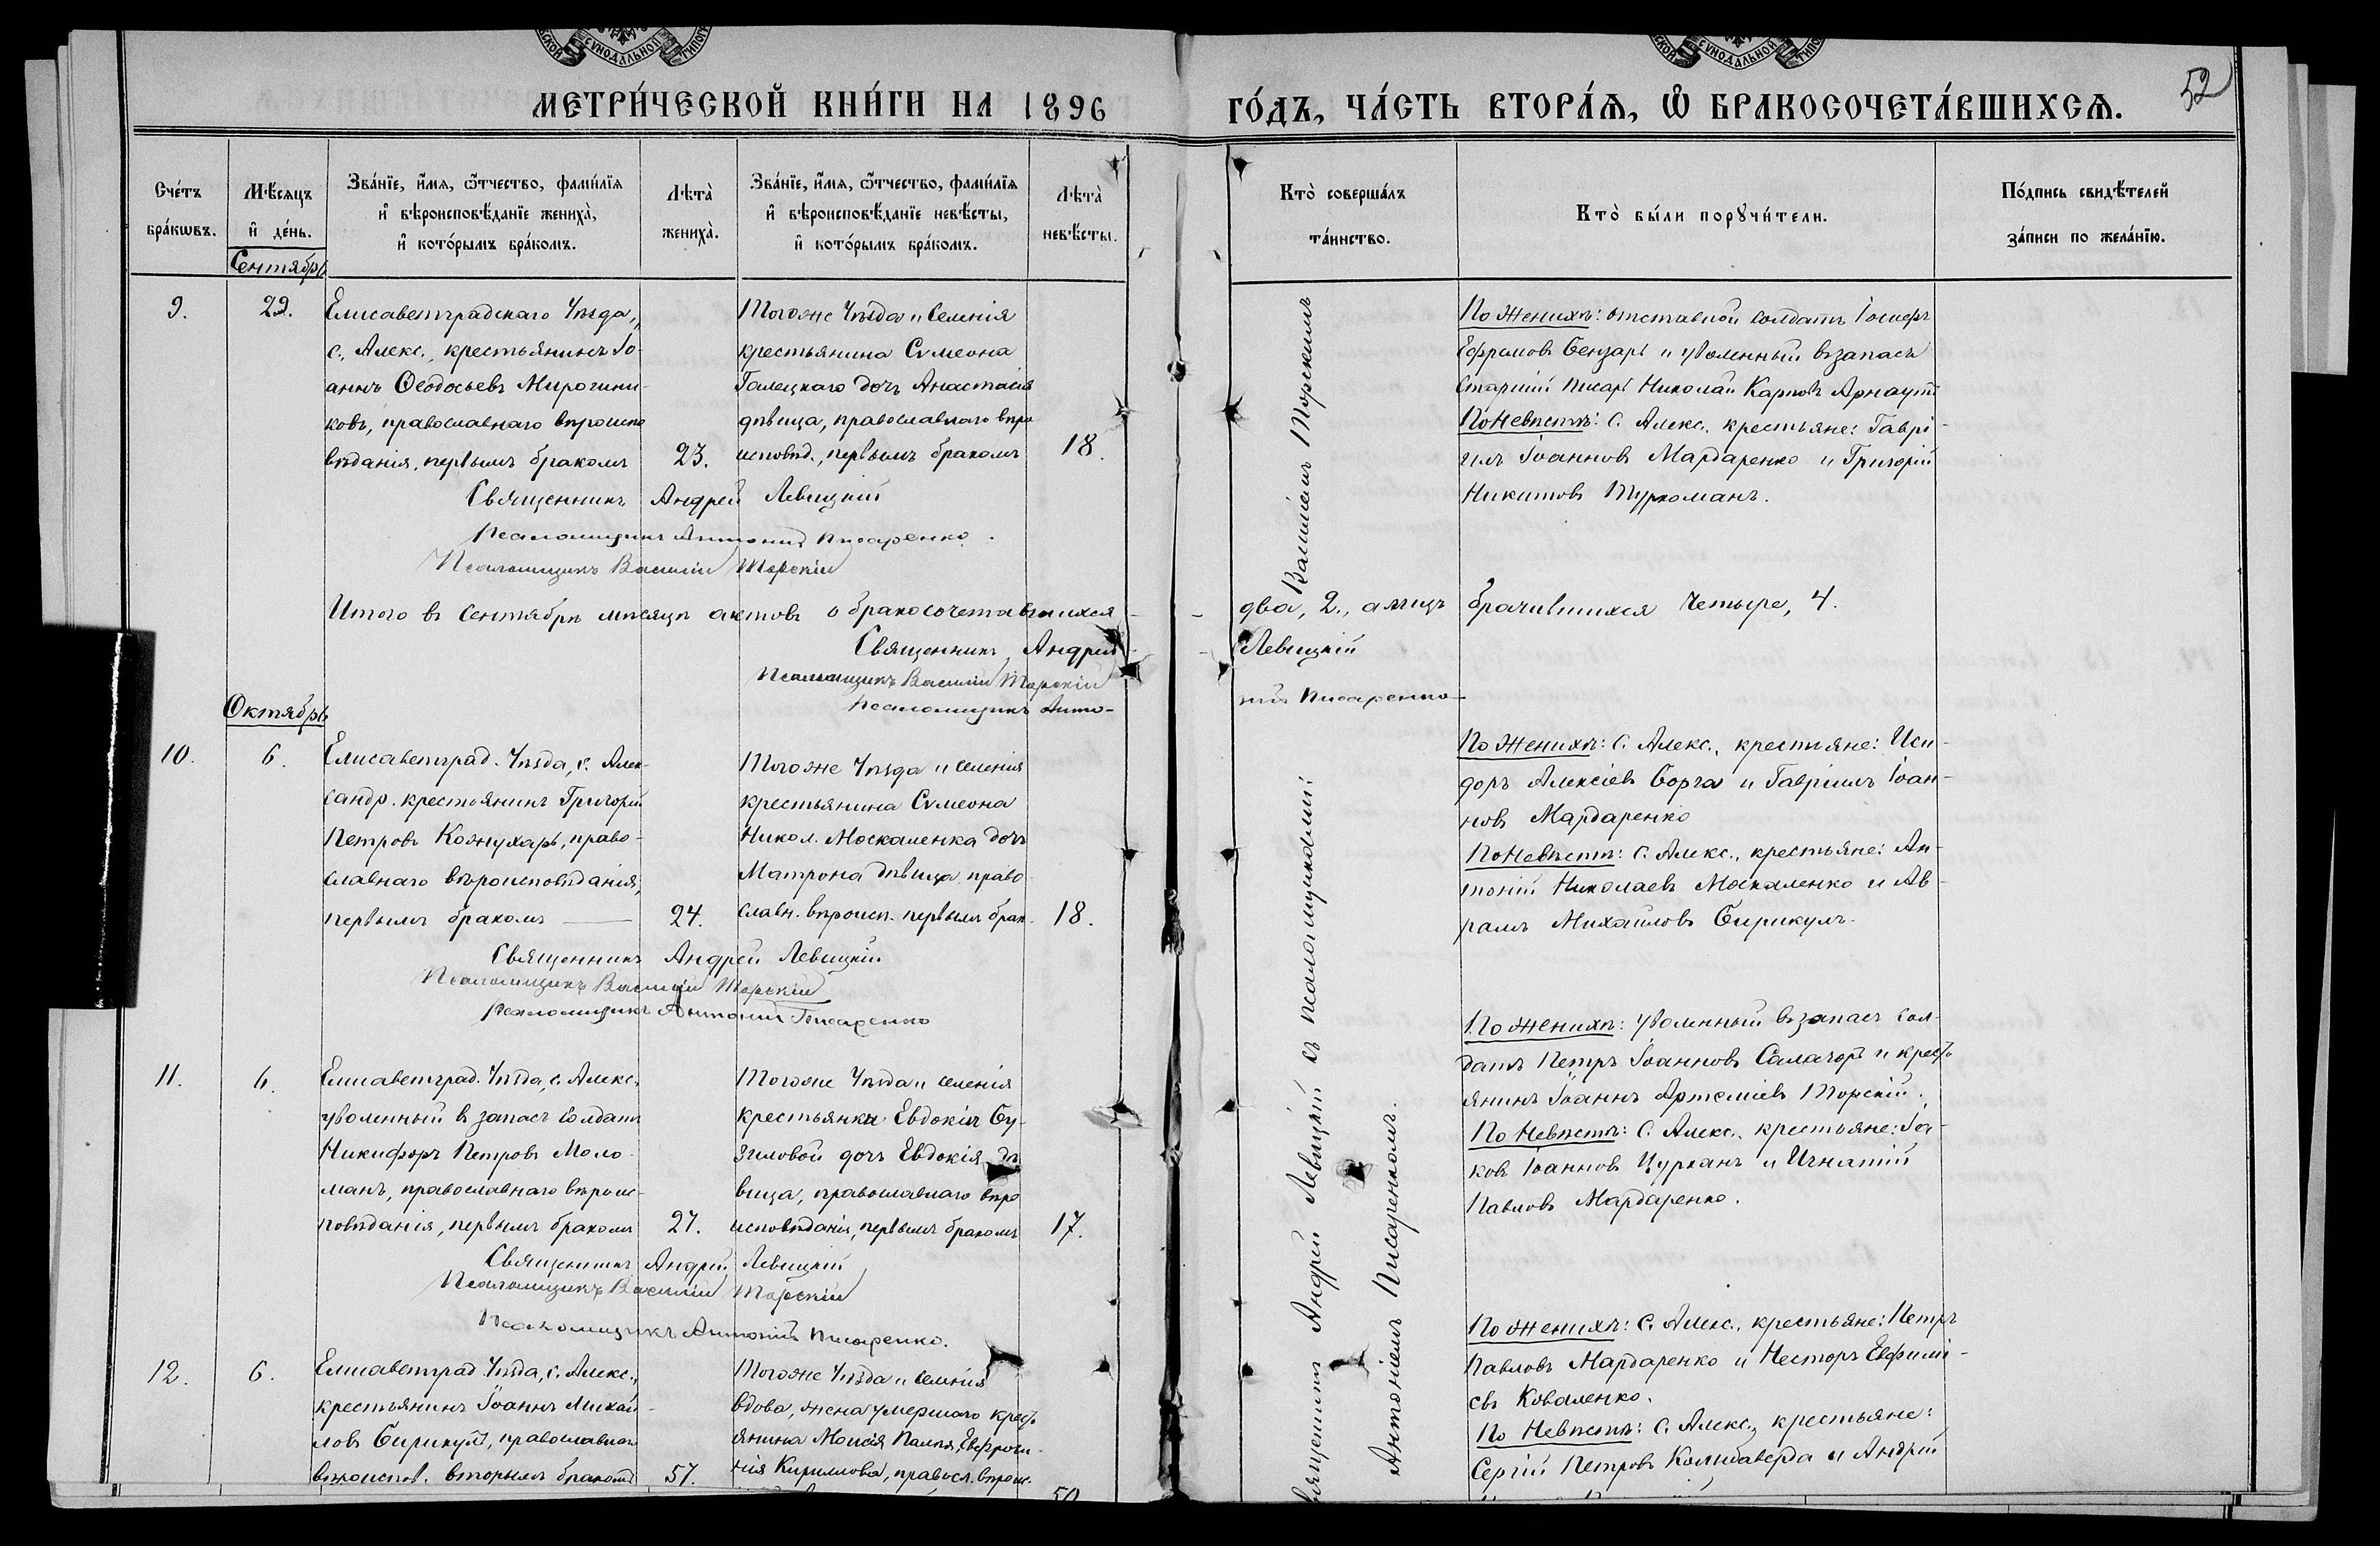 СУНОДАЛЬНОЙ
СУНОДАЛЬНОЙ
МЕТРИ́ЧЕСКОЙ КНИ́ГИ НА 1896
ГО́ДЪ, ЧА́СТЬ ВТОРА́Ѧ, Ѿ БРАКОСОЧЕТА́ВШИХСѦ.
52
Сче́тъ
бра́кωвъ.
Мѣ́сяцъ
и҆ де́нь.
Зва́нїе, и҆́мѧ, ѻ҆́тчество, фамі́лїѧ
и҆ вѣроисповѣ́данїе жениха̀,
и҆ кото́рымъ бра́комъ.
Лѣта̀
жениха̀.
Зва́нїе, и҆́мѧ, ѻ҆́тчество, фамі́лїѧ
и҆ вѣроисповѣ́данїе невѣ́сты,
и҆ кото́рымъ бра́комъ.
Лѣта̀
невѣ́сты.
Кто̀ соверша́лъ
та́инство.
Кто̀ бы́ли порꙋчи́тели.
По́дпись свидѣ́телей
за́писи по жела́нїю.
Сентябрь
9.
29.
Елисаветградскаго Уѣзда,
с. Алекс., крестьянинъ Іо-
аннъ Ѳеодосьевъ Мирошни-
ковъ, православнаго вѣроиспо
вѣданія, первымъ бракомъ
23.
Тогоже Уѣзда и селенія
крестьянина Сѵмеона
Галецкаго дочь Анастасія
дѣвица, православнаго вѣро
исповѣд., первымъ бракомъ
18.
По Женихѣ: отставной солдатъ Іосифъ
Ефремовъ Бензарь и уволенный въ запасъ
старшій писарь Николай Карповъ Арнаутъ
По Невѣстѣ: С. Алекс. крестьяне: Гаврі-
илъ Іоанновъ Мардаренко и Григорій
Никитовъ Туркоманъ.
Священникъ Андрей Левицкій
Псаломщикъ Антоній Писаренко.
Псаломщикъ Василій Торскій
Итого въ Сентябрѣ мѣсяцѣ актовъ о бракосочетавшихся -
- два, 2., а лицъ брачившихся четыре, 4.
Священникъ Андрей -
- Левицкій
Псаломщикъ Василій Торскій
Псаломщикъ Анто-
ній Писаренко
Октябрь
10.
6.
Елисаветград. Уѣзда, с. Алек-
сандр. крестьянинъ Григорій
Петровъ Кожухарь, право-
славнаго вѣроисповѣданія,
первымъ бракомъ
24.
Тогоже Уѣзда и селенія
крестьянина Сѵмеона
Никол. Москаленка дочь
Матрона дѣвица право-
славн. вѣроисп. первымъ брак-
18.
По Женихѣ: С. Алекс., крестьяне: Иси-
доръ Алексіевъ Борча и Гавріилъ Іоан-
новъ Мардаренко
По Невѣстѣ: С. Алекс., крестьяне: Ан-
тоній Николаевъ Москаленко и Ав-
рамъ Михаиловъ Бирикулъ.
Священникъ Андрей Левицкій
Псаломщикъ Василій Торскій
Псаломщикъ Антоній Писаренко
11.
6.
Елисаветград. Уѣзда, с. Алекс.
уволенный въ запасъ солдатъ
Никифоръ Петровъ Моло-
манъ, православнаго вѣроис-
повѣданія, первымъ бракомъ
27.
Тогоже Уѣзда и селенія
крестьянки Евдокіи Бу-
зиловой дочь Евдокія дѣ
вица, православнаго вѣро
исповѣданія, первымъ бракомъ
17.
По женихѣ: уволенный въ запасъ сол-
датъ Петръ Іоанновъ Салагоръ и кресть
янинъ Іоаннъ Артеміевъ Торскій.
По Невѣстѣ: С. Алекс. крестьяне: Іа-
ковъ Іоанновъ Цурканъ и Игнатій
Павловъ Мардаренко.
Священникъ Андрей Левицкій
Псаломщикъ Василій Торскій
Псаломщикъ Антоній Писаренко.
12.
6.
Елисаветград. Уѣзда, с. Алекс.,
крестьянинъ Іоаннъ Михай-
ловъ Бирикулъ, православнаго
вѣроиспов. вторымъ бракомъ
57.
Тогоже Уѣзда и селенія
вдова, жена умершаго кресть
янина Моисія Евфроси-
нія Кириллова, правосл. вѣроис.
50
По женихѣ: С. Алекс., крестьяне: Петръ
Павловъ Мардаренко и Несторъ Евфимі-
евъ Коваленко.
По Невѣстѣ: С. Алекс., крестьяне:
Сергій Петровъ Колибаверда и Андрей
Священникъ Андрей Левицкій съ псаломщиками: Василіемъ Торскимъ
Антоніемъ Писаренкомъ.